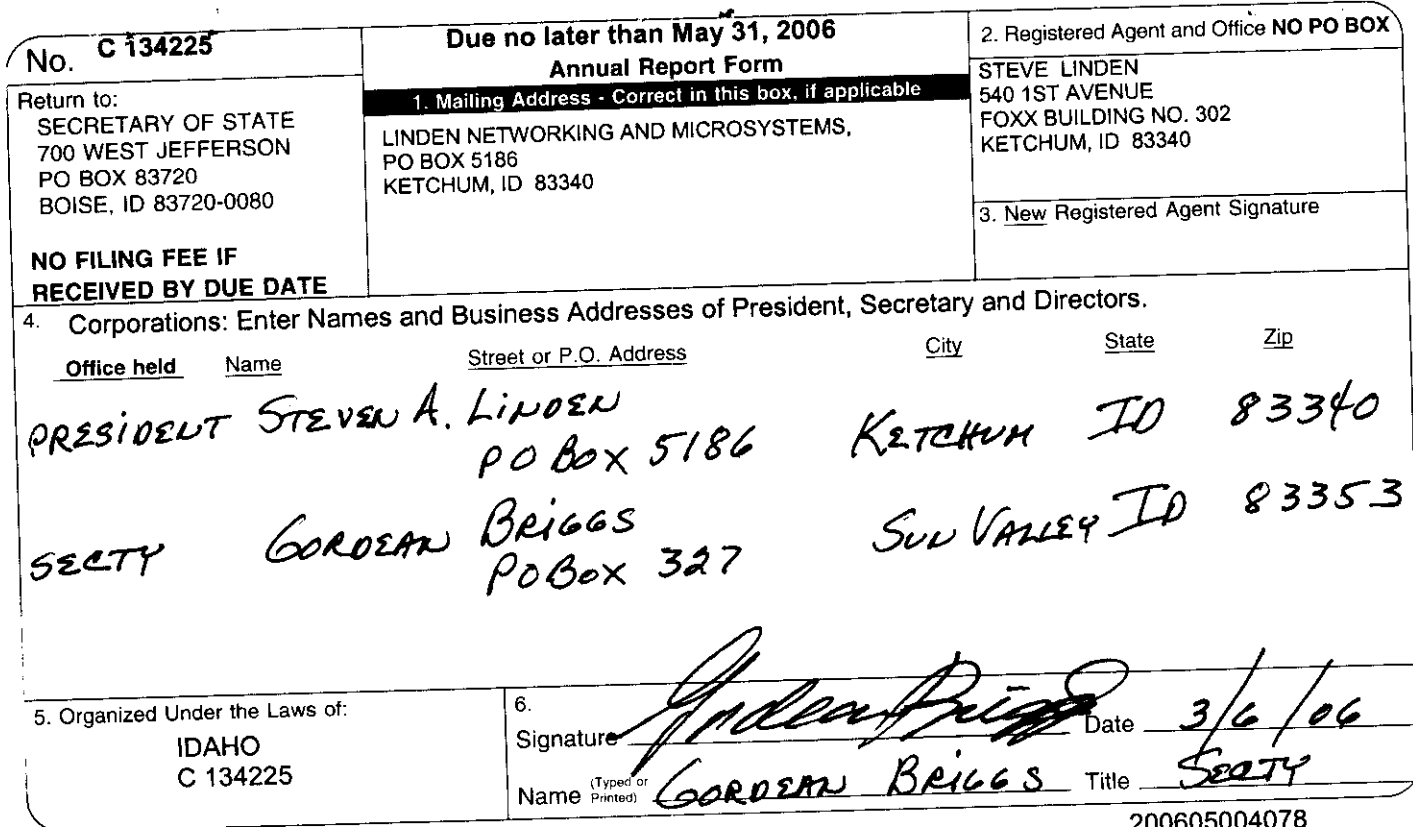 No. C 134225
Return to:
SECRETARY OF STATE
700 WEST JEFFERSON
PO BOX 83720
BOISE, ID 83720-0080
NO FILING FEE IF
RECEIVED BY DUE DATE
Due no later than May 31, 2006
Annual Report Form
1. Mailing Address - Correct in this box, if applicable
LINDEN NETWORKING AND MICROSYSTEMS,
PO BOX 5186
KETCHUM, ID 83340
2. Registered Agent and Office NO PO BOX
STEVE LINDEN
540 1ST AVENUE
FOXX BUILDING NO. 302
KETCHUM, ID 83340
3. New Registered Agent Signature
4. Corporations: Enter Names and Business Addresses of President, Secretary and Directors.
Office held Name Street or P.O. Address City State Zip
PRESIDENT STEVEN A. LINDEN
PO BOX 5186 KETCHUM ID 83340
SECTY GORDEAN BRIGGS
PO BOX 327 SUN VALLEY ID 83353
5. Organized Under the Laws of:
IDAHO
C 134225
6.
Signature Gordean Briggs Date 3/6/06
Name (Typed or Printed) GORDEAN BRIGGS Title SECTY
200605004078